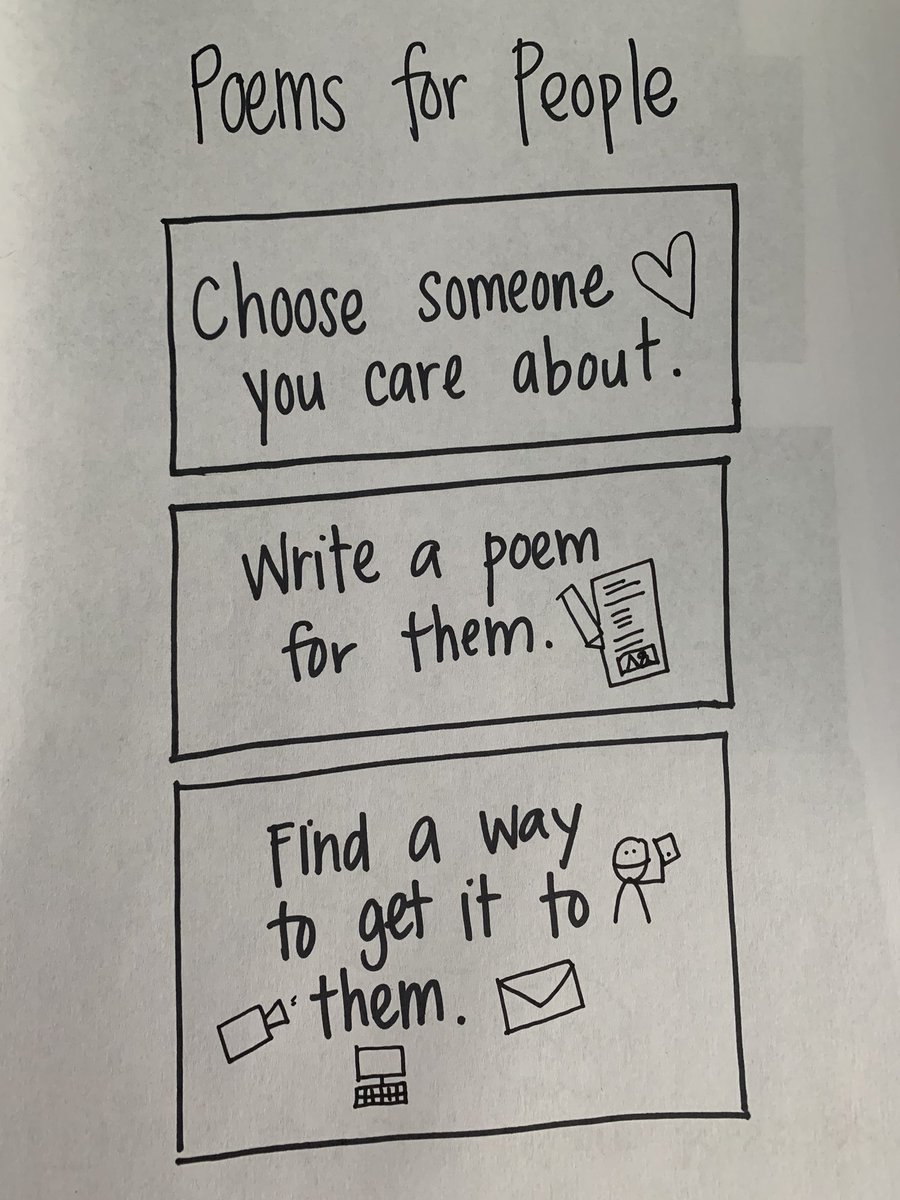 Poems for People
Choose someone
you care about.
Write a poem
for them.
Find a way
to get it to
them.